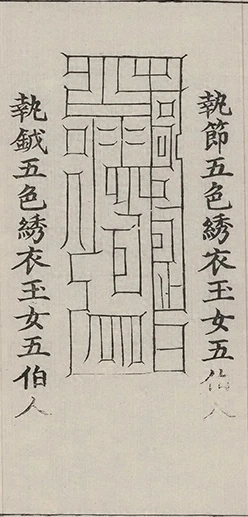 執節五色綉衣玉女五伯人
執鉞五色綉衣玉女五伯人